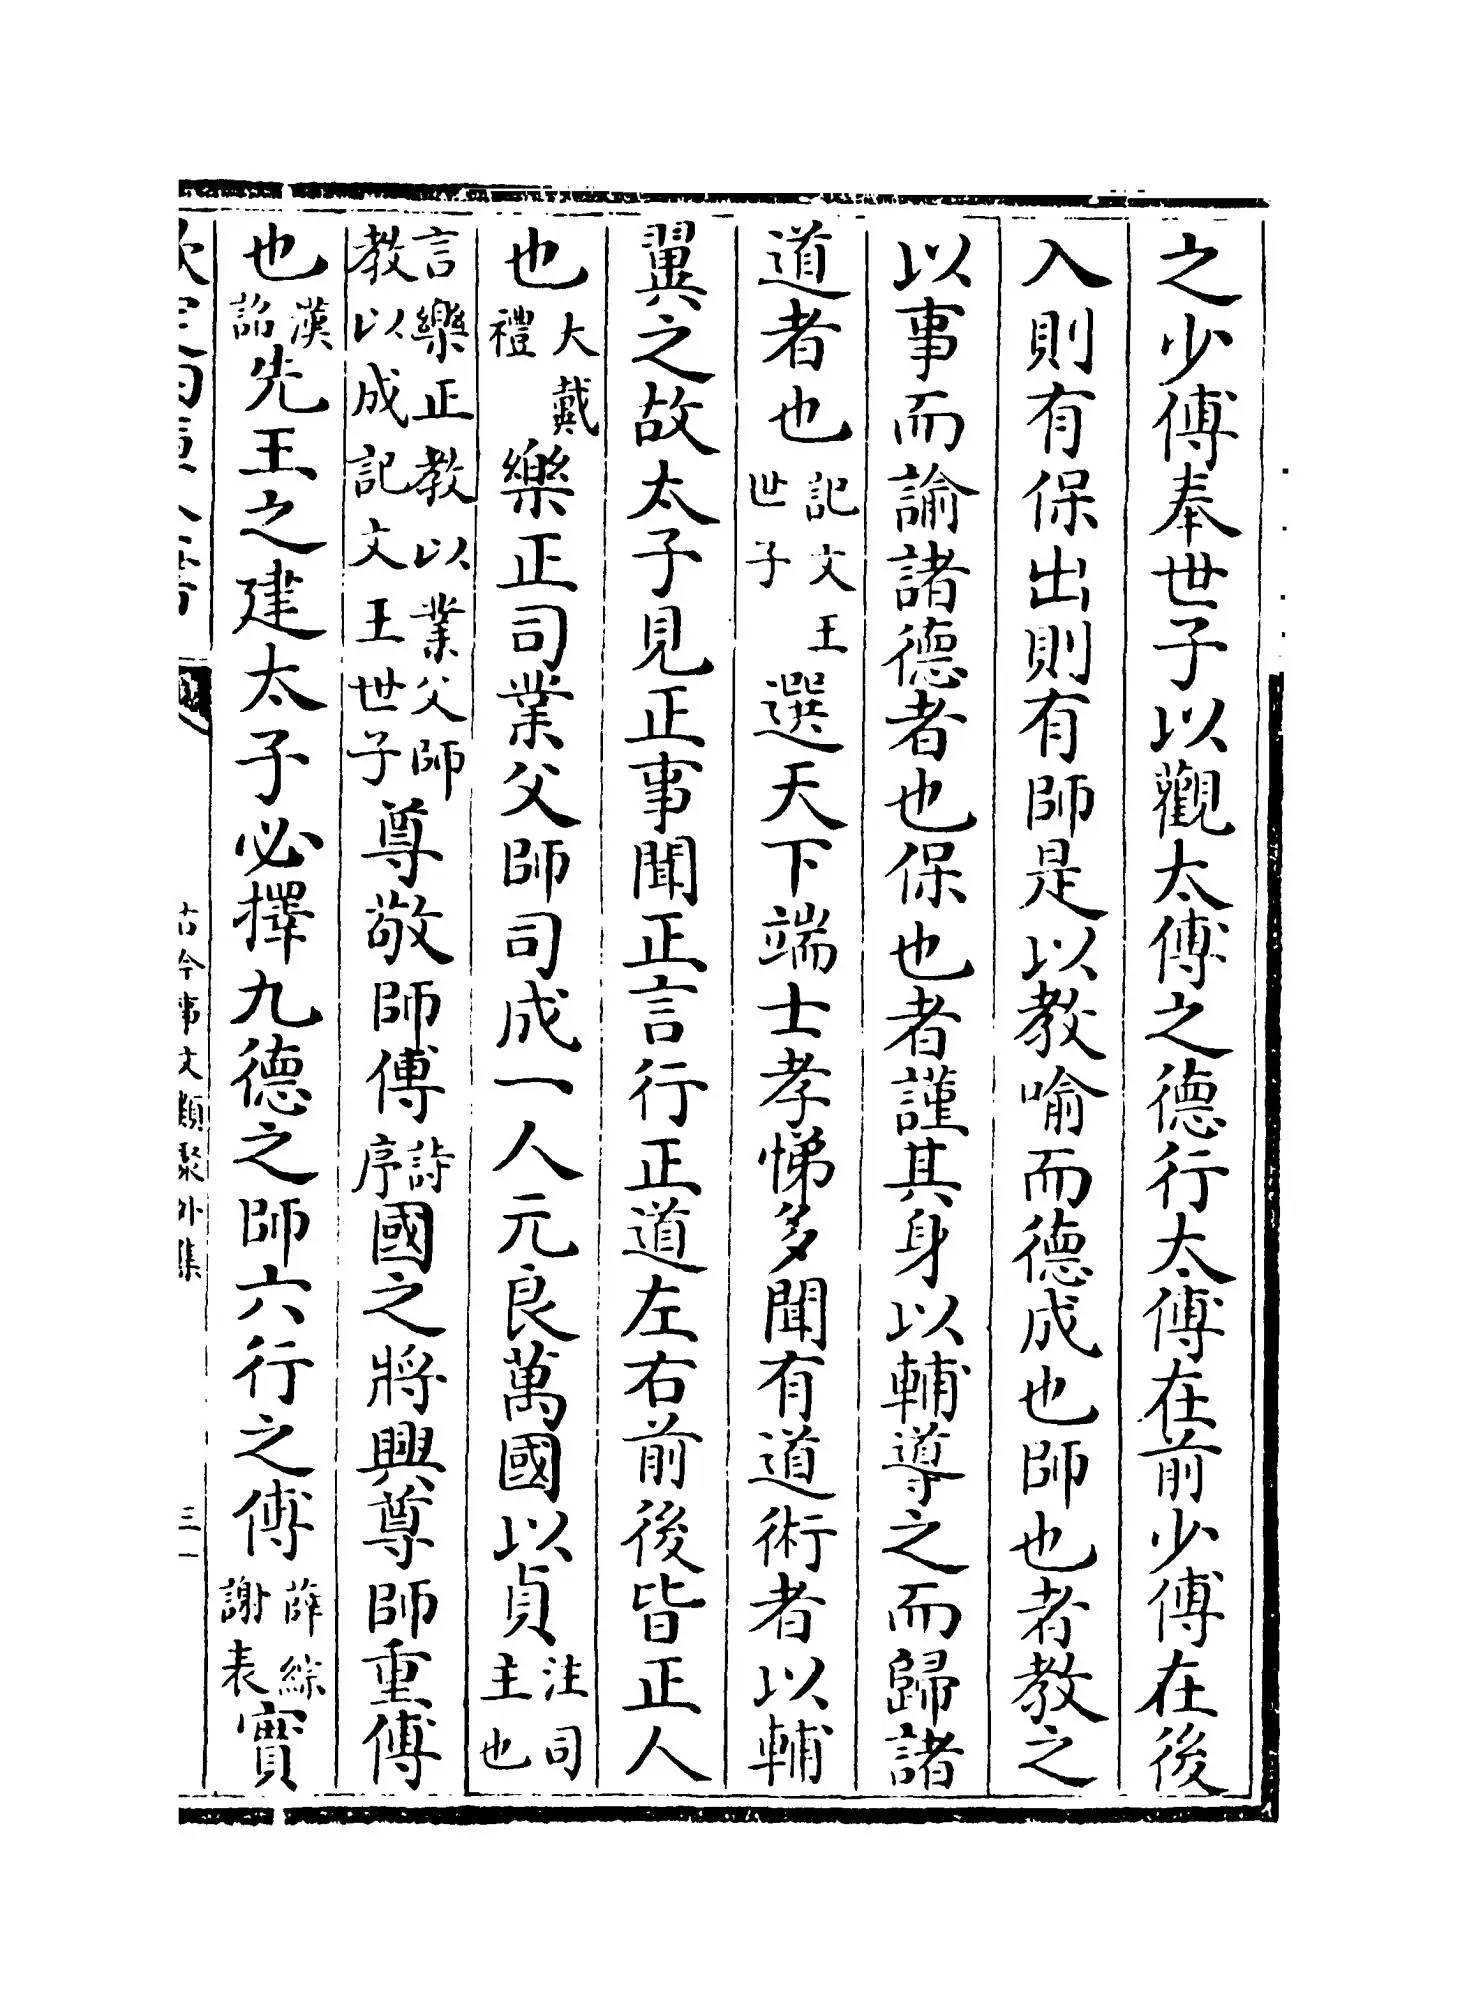 之少傅奉世子以觀太傅之德行太傅在前少傅在後
入則有保出則有師是以教喻而德成也師也者教之
以事而諭諸德者也保也者謹其身以輔導之而歸諸
道者也記文王世子選天下端士孝悌多聞有道術者以輔
翼之故太子見正事聞正言行正道左右前後皆正人
也大戴禮樂正司業父師司成一人元良萬國以貞注司主也
言樂正教以業父師教以成記文王世子尊敬師傅詩序國之將興尊師重傅
也漢詔先王之建太子必擇九德之師六行之傅薛綜謝表實
古今事文類聚外集